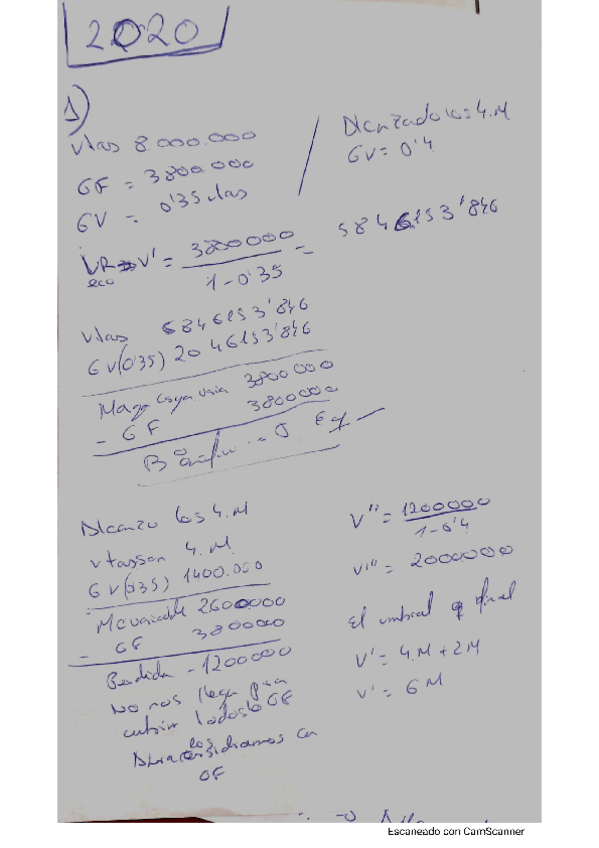 2020
1)
Vtas 8.000.000
GF = 3800.000
GV = 0'35 vtas
Alcanzado los 4.M
GV = 0'4
V' = 3800000 / 1-0'35 = 5846153'846
eco
Vtas 5846153'846
GV(0'35) 2046153'846
Marg 3800000
- GF 3800000
Bº = 0
Alcanzo los 4.M
Vtas son 4.M
GV(0'35) 1400.000
Mc variable 2600000
- GF 3800000
Perdida - 1200000
No nos llega para
cubrir todos los GF
GF
V'' = 1200000 / 1-0'4
V'' = 2000000
El umbral final
V' = 4.M + 2M
V' = 6M
Escaneado con CamScanner